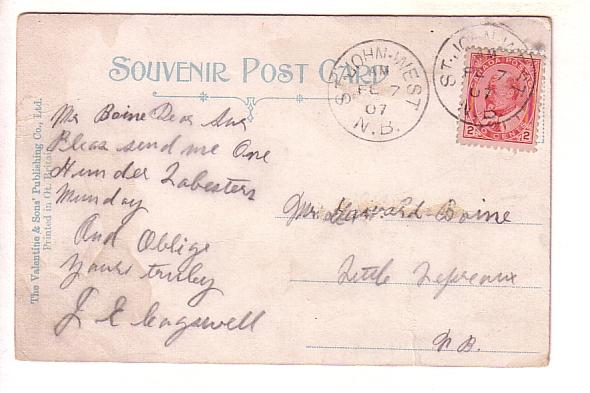 SOUVENIR POST CARD
ST. JOHN-WEST
AM
FE 7
07
N.B.
ST. JOHN
AM
FE 7
07
N.B.
CANADA POSTAGE
2 CENTS 2
The Valentine & Sons' Publishing Co., Ltd.
Printed in Gt. Britain
Mr Boine Dear Sur
Pleas send me One
Hunder Lobesters
Munday
And Oblige
Yours truly
J E Cogswell
Mr. Howard Boine
Little Lepreaux
N B.